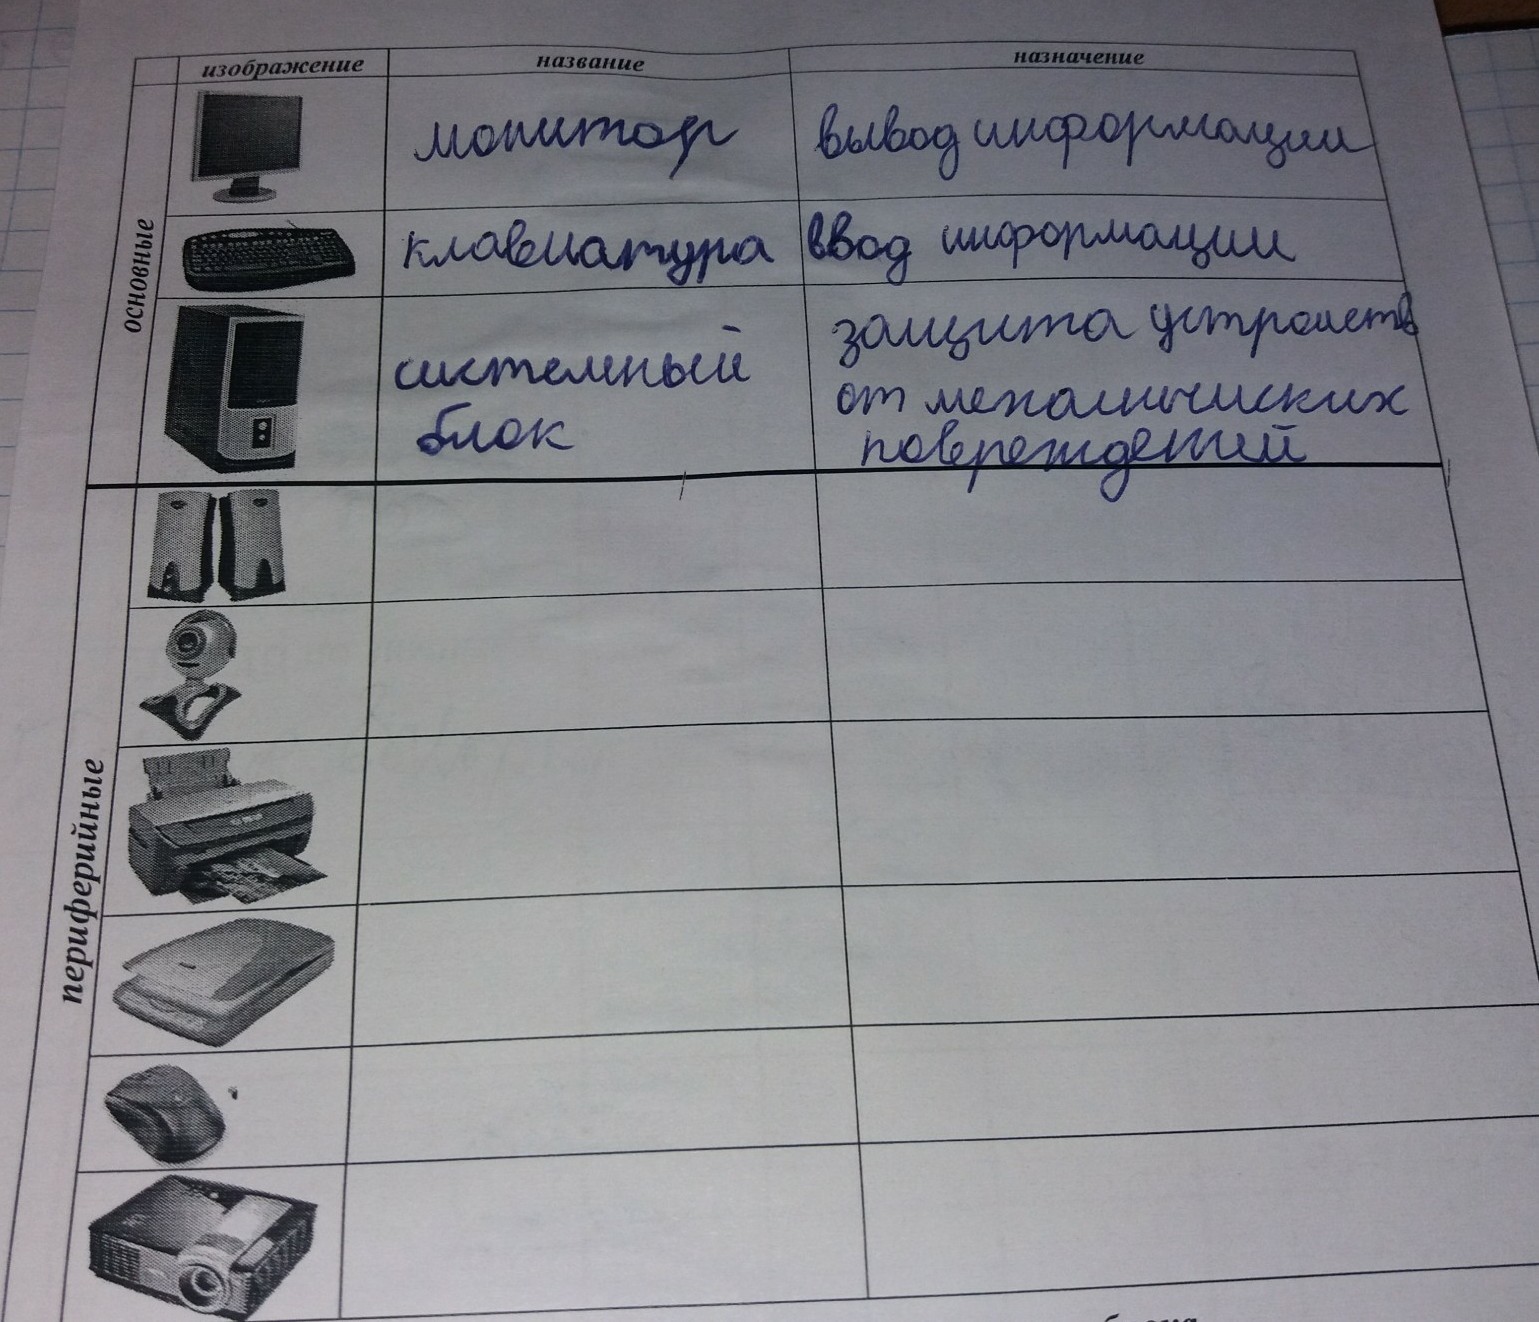 изображение название назначение
основные
монитор вывод информации
клавиатура ввод информации
системный
блок
защита устройств
от механических
повреждений
периферийные